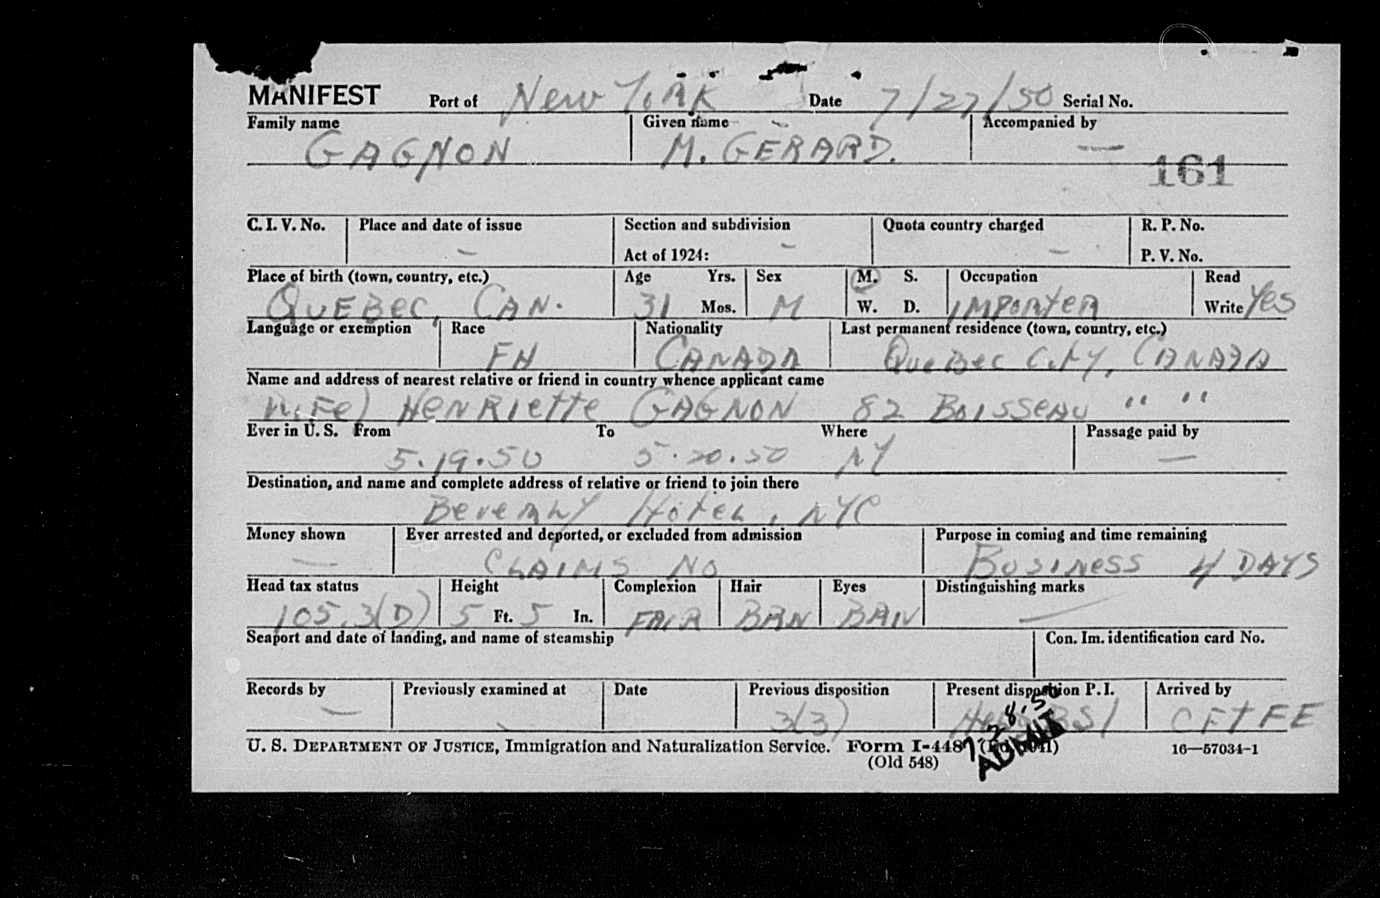 MANIFEST Port of New York Date 7/27/50 Serial No.
Family name Given name Accompanied by
GAGNON M. GERARD. —
161
C. I. V. No. Place and date of issue Section and subdivision Quota country charged R. P. No.
— Act of 1924: — — P. V. No.
Place of birth (town, country, etc.) Age Yrs. Sex M. S. Occupation Read
QUEBEC, CAN. 31 Mos. M W. D. IMPORTER Write Yes
Language or exemption Race Nationality Last permanent residence (town, country, etc.)
FH CANADA QUEBEC CITY, CANADA
Name and address of nearest relative or friend in country whence applicant came
WIFE) HENRIETTE GAGNON 82 BOISSEAU " "
Ever in U. S. From To Where Passage paid by
5.19.50 5.20.50 NY —
Destination, and name and complete address of relative or friend to join there
BEVERLY HOTEL, NYC
Money shown Ever arrested and deported, or excluded from admission Purpose in coming and time remaining
— CLAIMS NO BUSINESS 4 DAYS
Head tax status Height Complexion Hair Eyes Distinguishing marks
105.3(D) 5 Ft. 5 In. FAIR BRN BRN —
Seaport and date of landing, and name of steamship Con. Im. identification card No.
Records by Previously examined at Date Previous disposition Present disposition P. I. Arrived by
— 3(3) Held BSI CFTFE
7.28.50
ADMIT
U. S. DEPARTMENT OF JUSTICE, Immigration and Naturalization Service. Form I-448 16—57034-1
(Old 548)